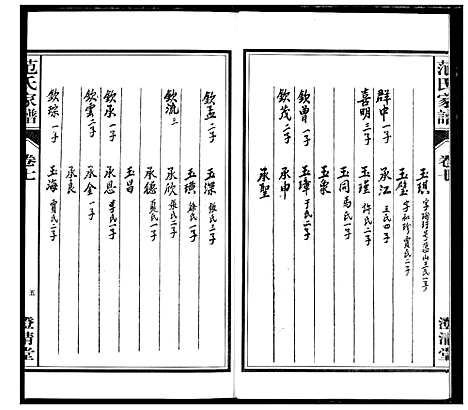 范氏家譜
卷七
澄清堂
玉琪
玉璧 字和珍賈氏二子
群中 一子 承江 王氏四子
喜明 三子 玉瑾 許氏二子
玉同 馬氏一子
玉象
欽曾 一子 玉璋 于氏一子
欽茂 二子 承申
承聖
欽孟 二子 玉深 張氏二子
玉璜 徐氏一子
欽流 三 承欣 張氏二子
承德 蘇氏一子
玉昌
欽承 一子 承恩 李氏一子
欽雲 二子 承金 一子
承良
欽琮 一子 玉海 賈氏二子
范氏家譜
卷七
五
澄清堂